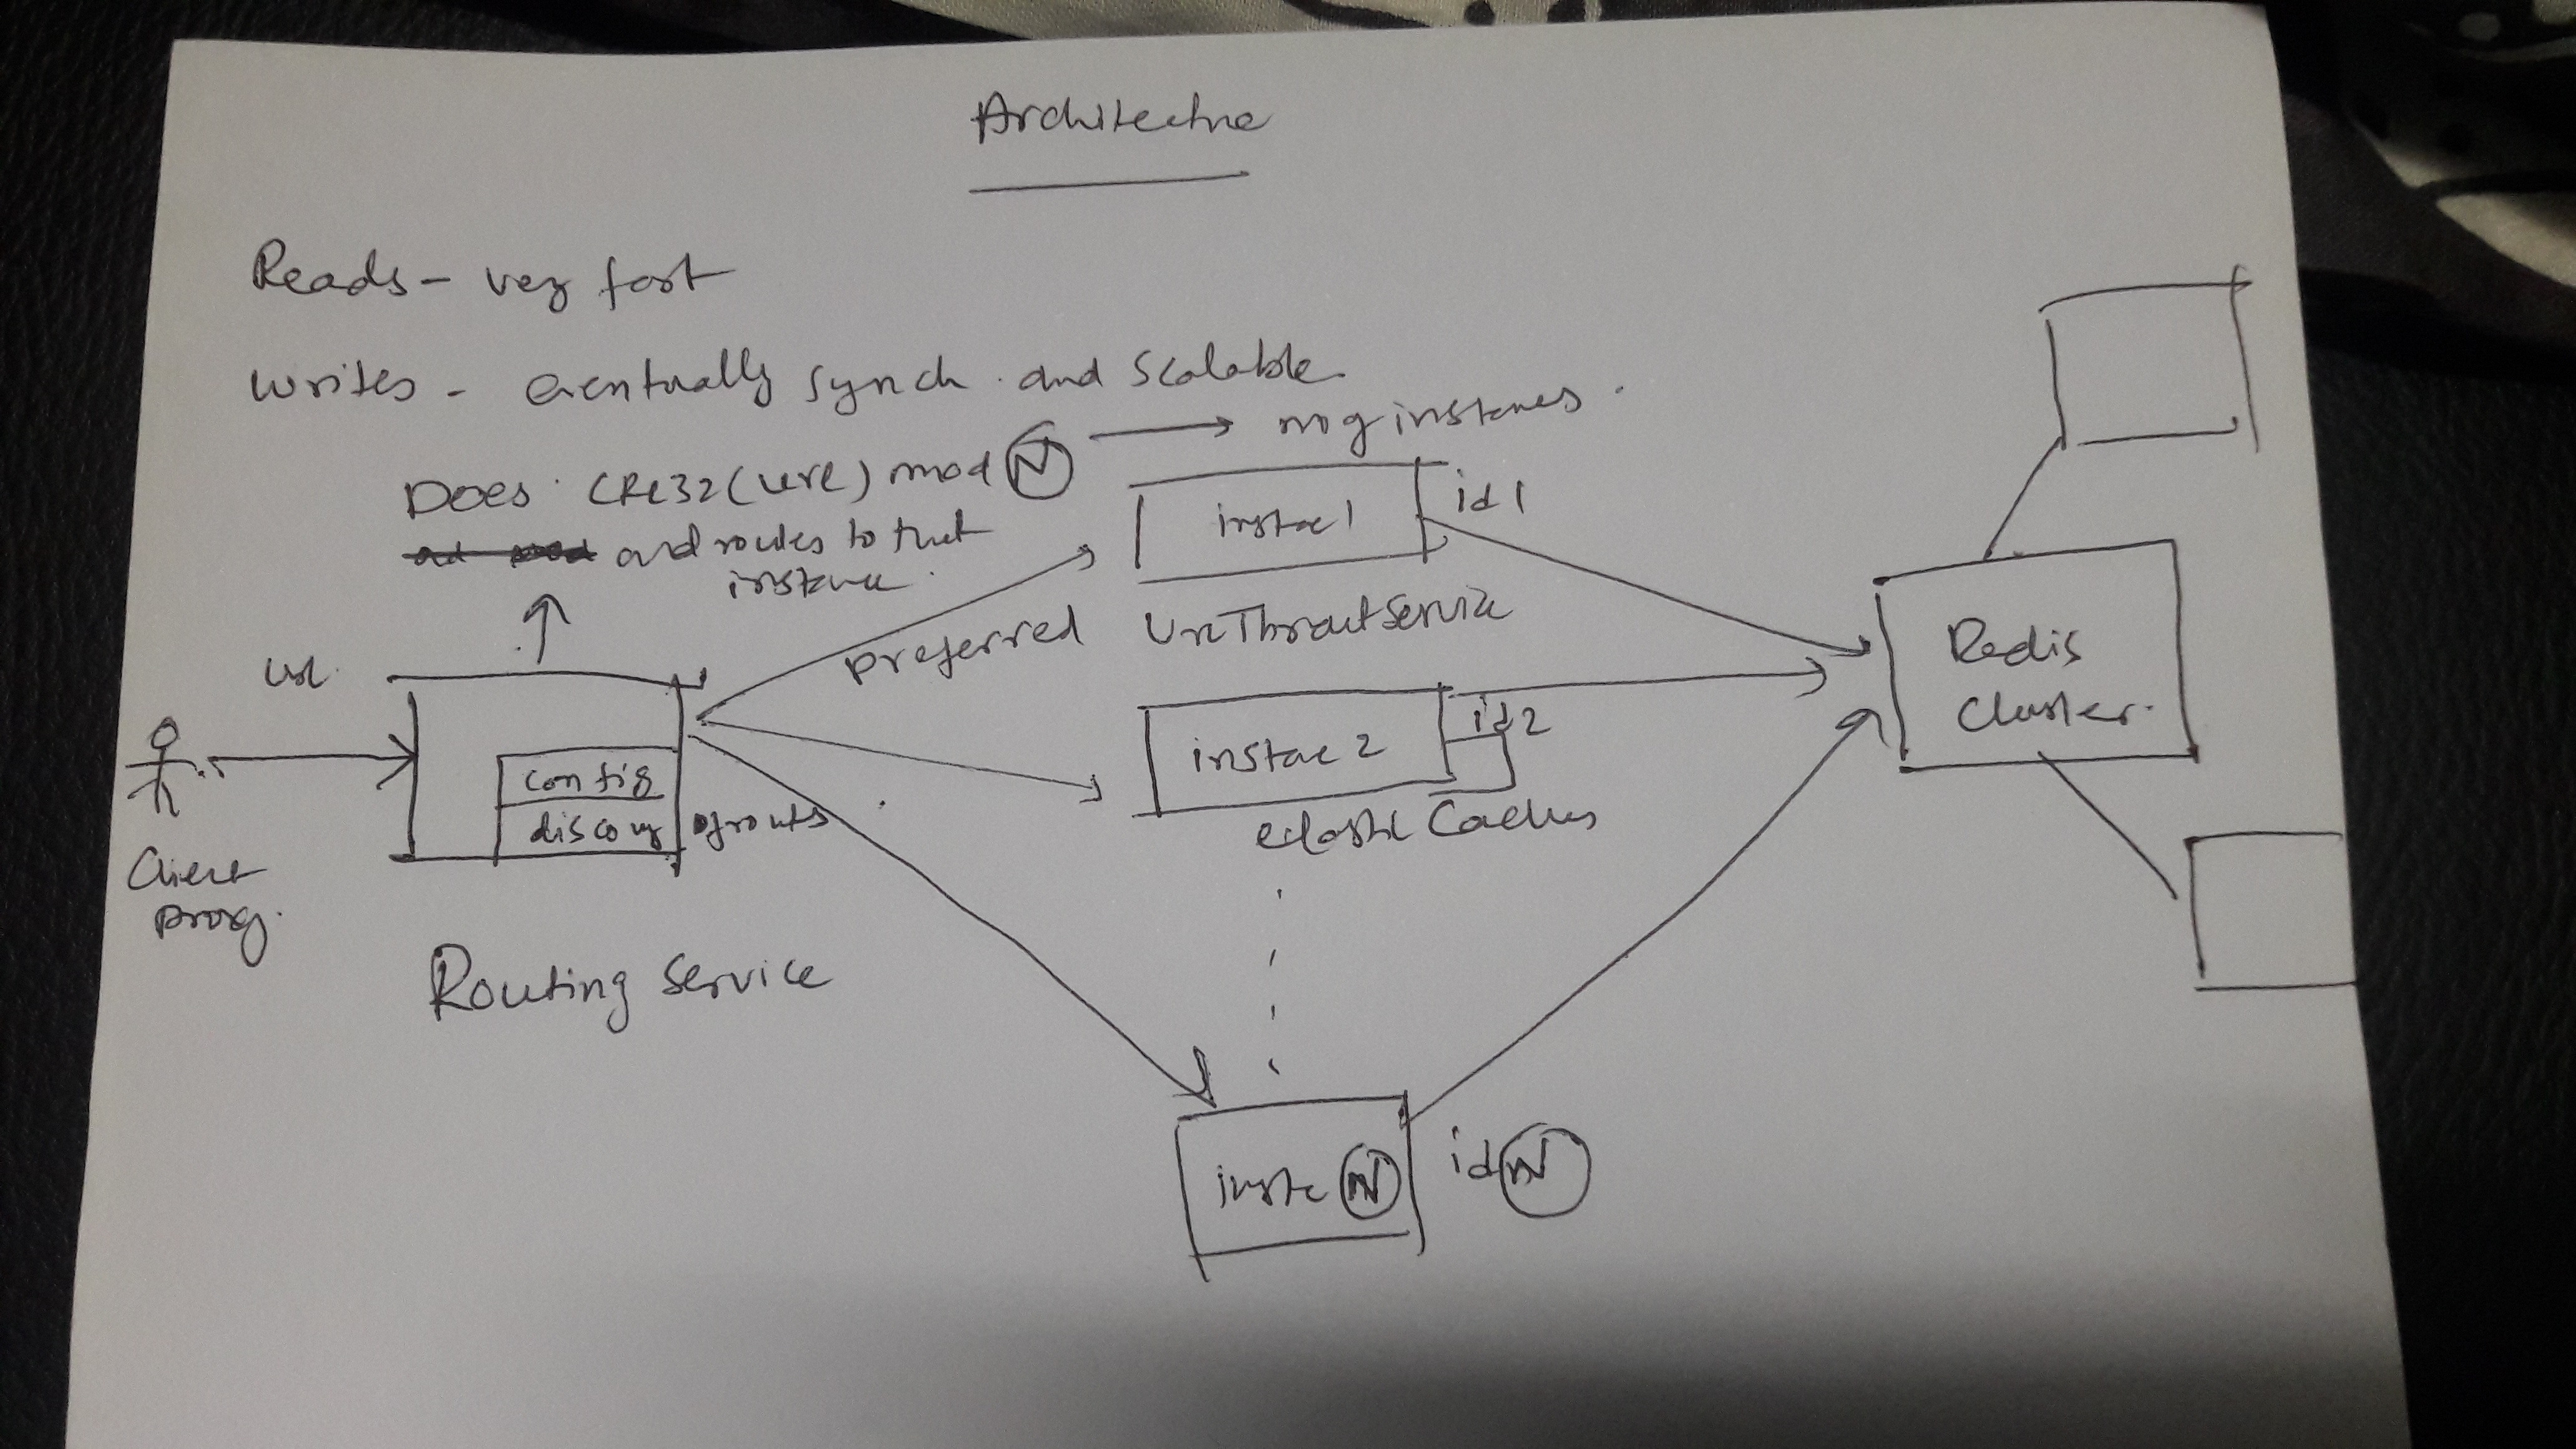 Architecture
Reads - very fast
writes - eventually synch. and scalable
Does CRC32(URL) mod N → no of instances.
and routes to that
instance.
URL
Client
proxy.
config
discovery
of routes
Routing service
preferred
instace 1
id 1
UrlThroutService
instace 2
id2
elastic Caches
inste N
id N
Redis
Cluster.